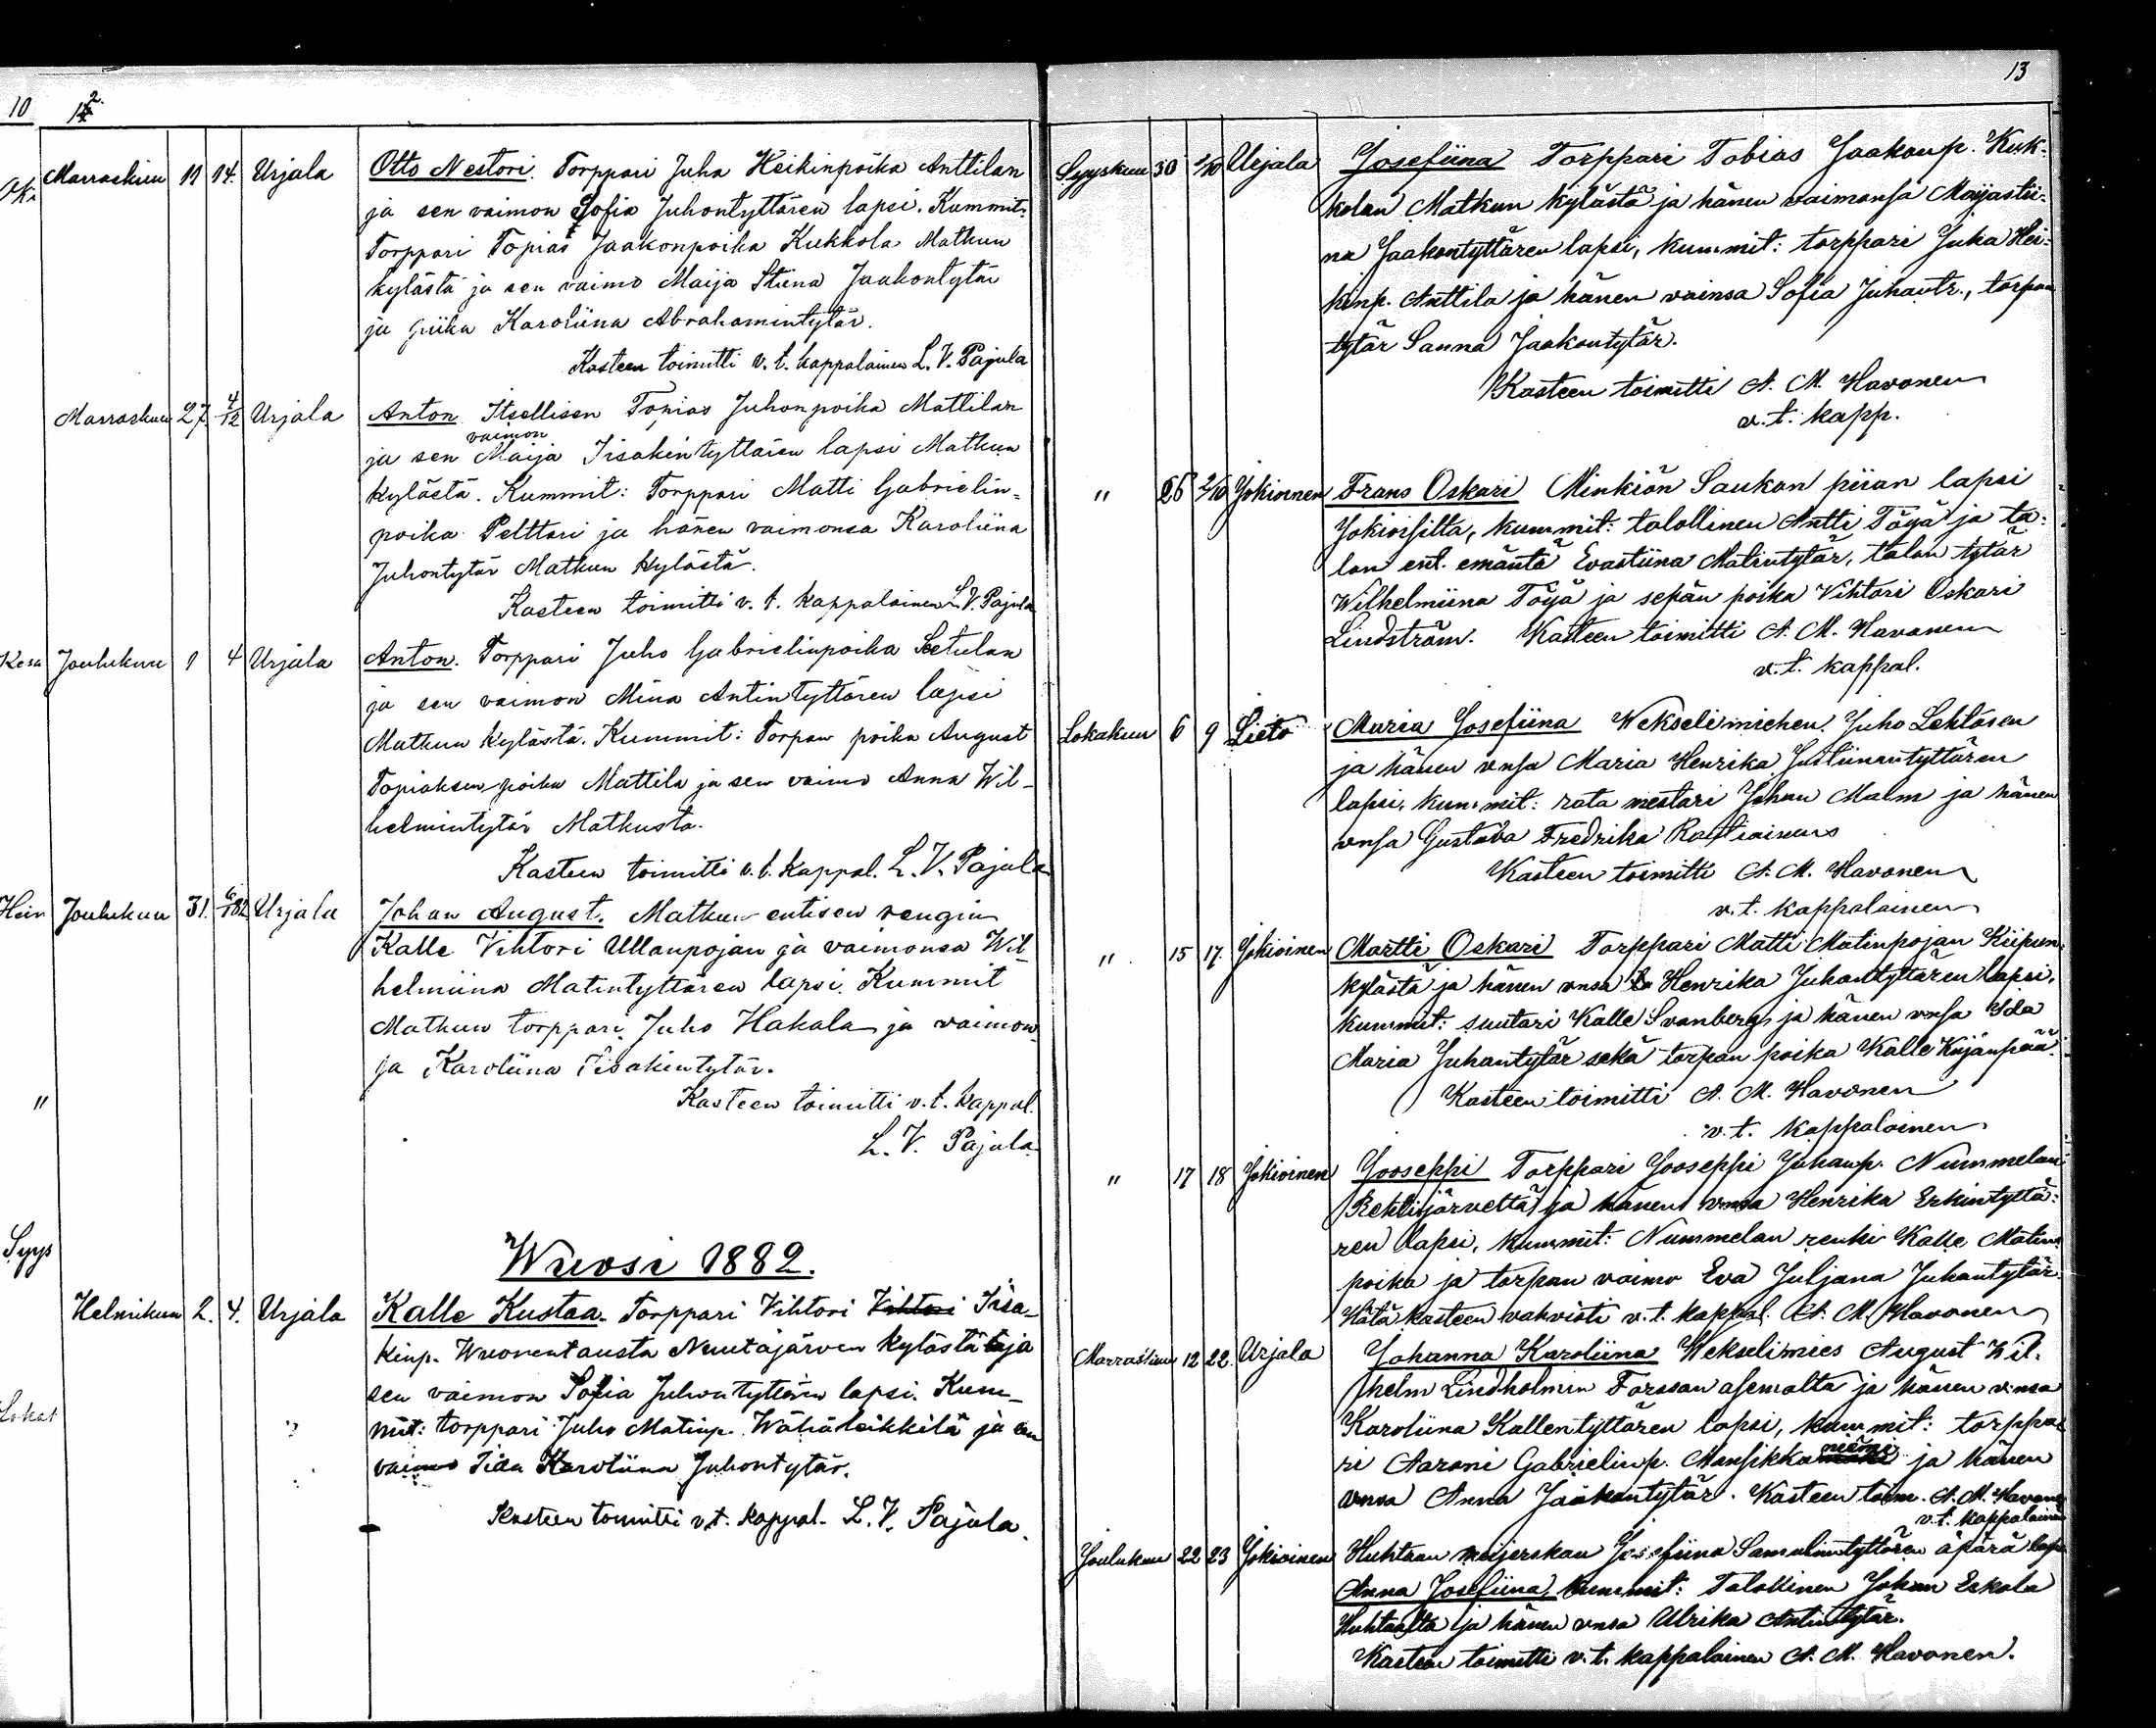 10 12
Marraskuu 11 14. Urjala Otto Nestori. Torppari Juha Heikinpoika Anttilan
ja sen vaimon Sofia Juhontyttären lapsi. Kummit:
Torppari Topias Jaakonpoika Kukkola Matkun
kylästä ja sen vaimo Maija Stiina Jaakontytär
ja piika Karoliina Abrahamintytär.
Kasteen toimitti v. t. kappalainen L. V. Pajula
Marraskuu 27. 4/12 Urjala Anton Itsellisen Topias Juhonpoika Mattilan
vaimon
ja sen Maija Iisakintyttären lapsi Matkun
kylästä. Kummit: Torppari Matti Gabrielin-
poika Pelttari ja hänen vaimonsa Karoliina
Juhontytär Matkun kylästä.
Kasteen toimitti v. t. kappalainen L. V. Pajula
Kesä Joulukuu 1 4 Urjala Anton. Torppari Juho Gabrielinpoika Seetulan
ja sen vaimon Miina Antintyttären lapsi
Matkun kylästä. Kummit: Torpan poika August
Topiaksen poika Mattila ja sen vaimo Anna Wil-
helmintytär Matkusta.
Kasteen toimitti v. t. kappal. L. V. Pajula
Hein Joulukuu 31. 6/1 82 Urjala Johan August. Matkun entisen rengin
Kalle Vihtori Ullanpojan ja vaimonsa Wil-
helmiina Matintyttären lapsi. Kummit
Matkun torppari Juho Hakala ja vaimon
ja Karoliina Iisakintytär.
" Kasteen toimitti v. t. kappal.
L. V. Pajula
Syys
Wuosi 1882.
Helmikuu 2. 4. Urjala Kalle Kustaa. Torppari Vihtori Vihtori Iisa-
kinp. Wuorentausta Nuutajärven kylästä ja
sen vaimon Sofia Juhontyttären lapsi. Kum-
Lokak mit: torppari Juho Matinp. Wähäleikkilä ja sen
vaimo Iida Karoliina Juhontytär.
Kasteen toimitti v. t. kappal. L. V. Pajula.
13
Syyskuu 30 1/10 Urjala Josefiina Torppari Tobias Jaakonp. Kuk-
kolan Matkun kylästä ja hänen vaimonsa Maijastii-
na Jaakontyttären lapsi, kummit: torppari Juha Hei-
kinp. Anttila ja hänen vainsa Sofia Juhantr., torpan
tytär Sanna Jaakontytär.
Kasteen toimitti A. M. Havonen
v. t. kapp.
" 26 2/10 Jokioinen Frans Oskari Minkiön Saukon piian lapsi
Jokioisilta, kummit: talollinen Antti Töyä ja ta-
lon ent. emäntä Evastiina Matintytär, talon tytär
Wilhelmiina Töyä ja sepän poika Vihtori Oskari
Lindström. Kasteen toimitti A. M. Havonen
v. t. kappal.
Lokakuu 6 9 Lieto Maria Josefiina Wekselimiehen Juho Lehtosen
ja hänen vnsa Maria Henrika Justiinantyttären
lapsi, kummit: rata mestari Johan Malm ja hänen
vnsa Gustava Fredrika
Kasteen toimitti A. M. Havonen
v. t. kappalainen
" 15 17. Jokioinen Martti Oskari Torppari Matti Matinpojan Kiipun
kylästä ja hänen vnsa Henrika Juhantyttären lapsi,
kummit: suutari Kalle Svanberg ja hänen vnsa Ida
Maria Juhantytär sekä torpan poika Kalle Kujanpää.
Kasteen toimitti A. M. Havonen
v. t. kappalainen
" 17 18 Jokioinen Jooseppi Torppari Jooseppi Juhanp. Nummelan
Rehtijärveltä ja hänen vnsa Henrika Erkintyttä-
ren lapsi, kummit: Nummelan renki Kalle Matin
poika ja torpan vaimo Eva Juljana Juhantytär
Hätä kasteen vahvisti v. t. kappal. A. M. Havonen
Marraskuu 12 22. Urjala Johanna Karoliina Wekselimies August Wil-
helm Lindholmin Forssan asemalta ja hänen vnsa
Karoliina Kallentyttären lapsi, kummit: torppa-
niemi
ri Aaroni Gabrielinp. Mansikka ja hänen
vnsa Anna Jaakontytär. Kasteen toim. A. M. Havonen
v. t. kappalainen
Joulukuu 22 23 Jokioinen Huhtaan meijerskan Josefiina Samulintyttären äpärä lapsi
Anna Josefiina, kummit: Talollinen Johan Eskola
Huhtaalta ja hänen vnsa Ulrika Antintytär.
Kasteen toimitti v. t. kappalainen A. M. Havonen.